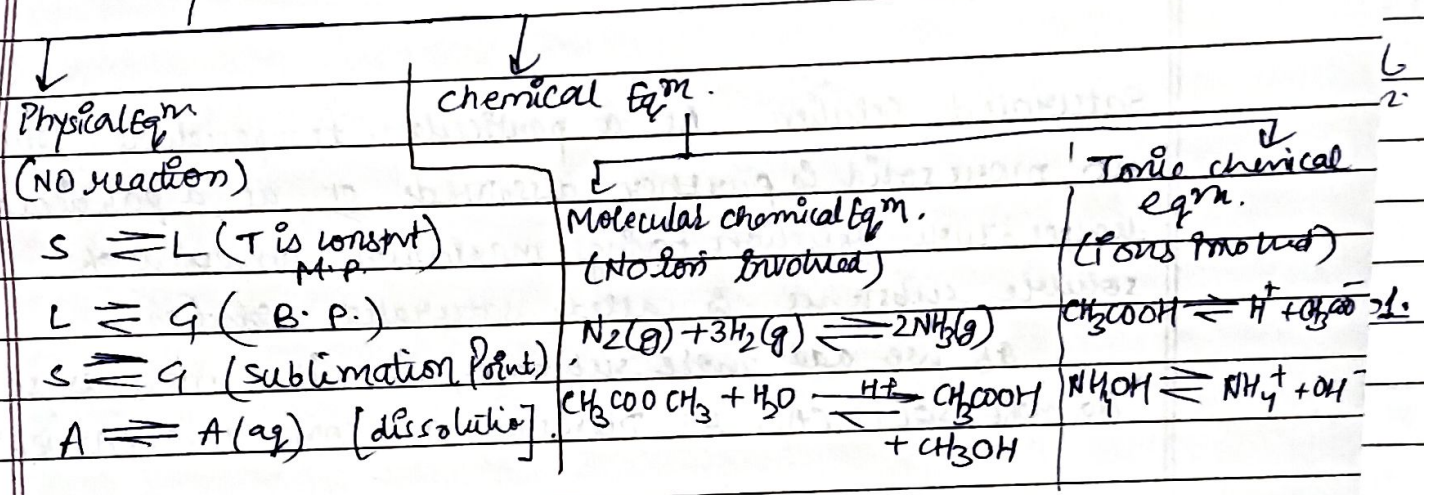 Physical Eqm
(NO reaction)
S ⇌ L (T is constnt)
M.P.
L ⇌ G (B.P.)
S ⇌ G (sublimation Point)
A ⇌ A(aq) [dissolutio]
chemical Eqm.
Molecular chemical Eqm.
(NO ion involved)
N2(g) + 3H2(g) ⇌ 2NH3(g)
CH3COOCH3 + H2O ⇌ CH3COOH
H+
+ CH3OH
Ionic chemical
eqm.
(ions involved)
CH3COOH ⇌ H+ + CH3COO-
NH4OH ⇌ NH4+ + OH-
1.
2.